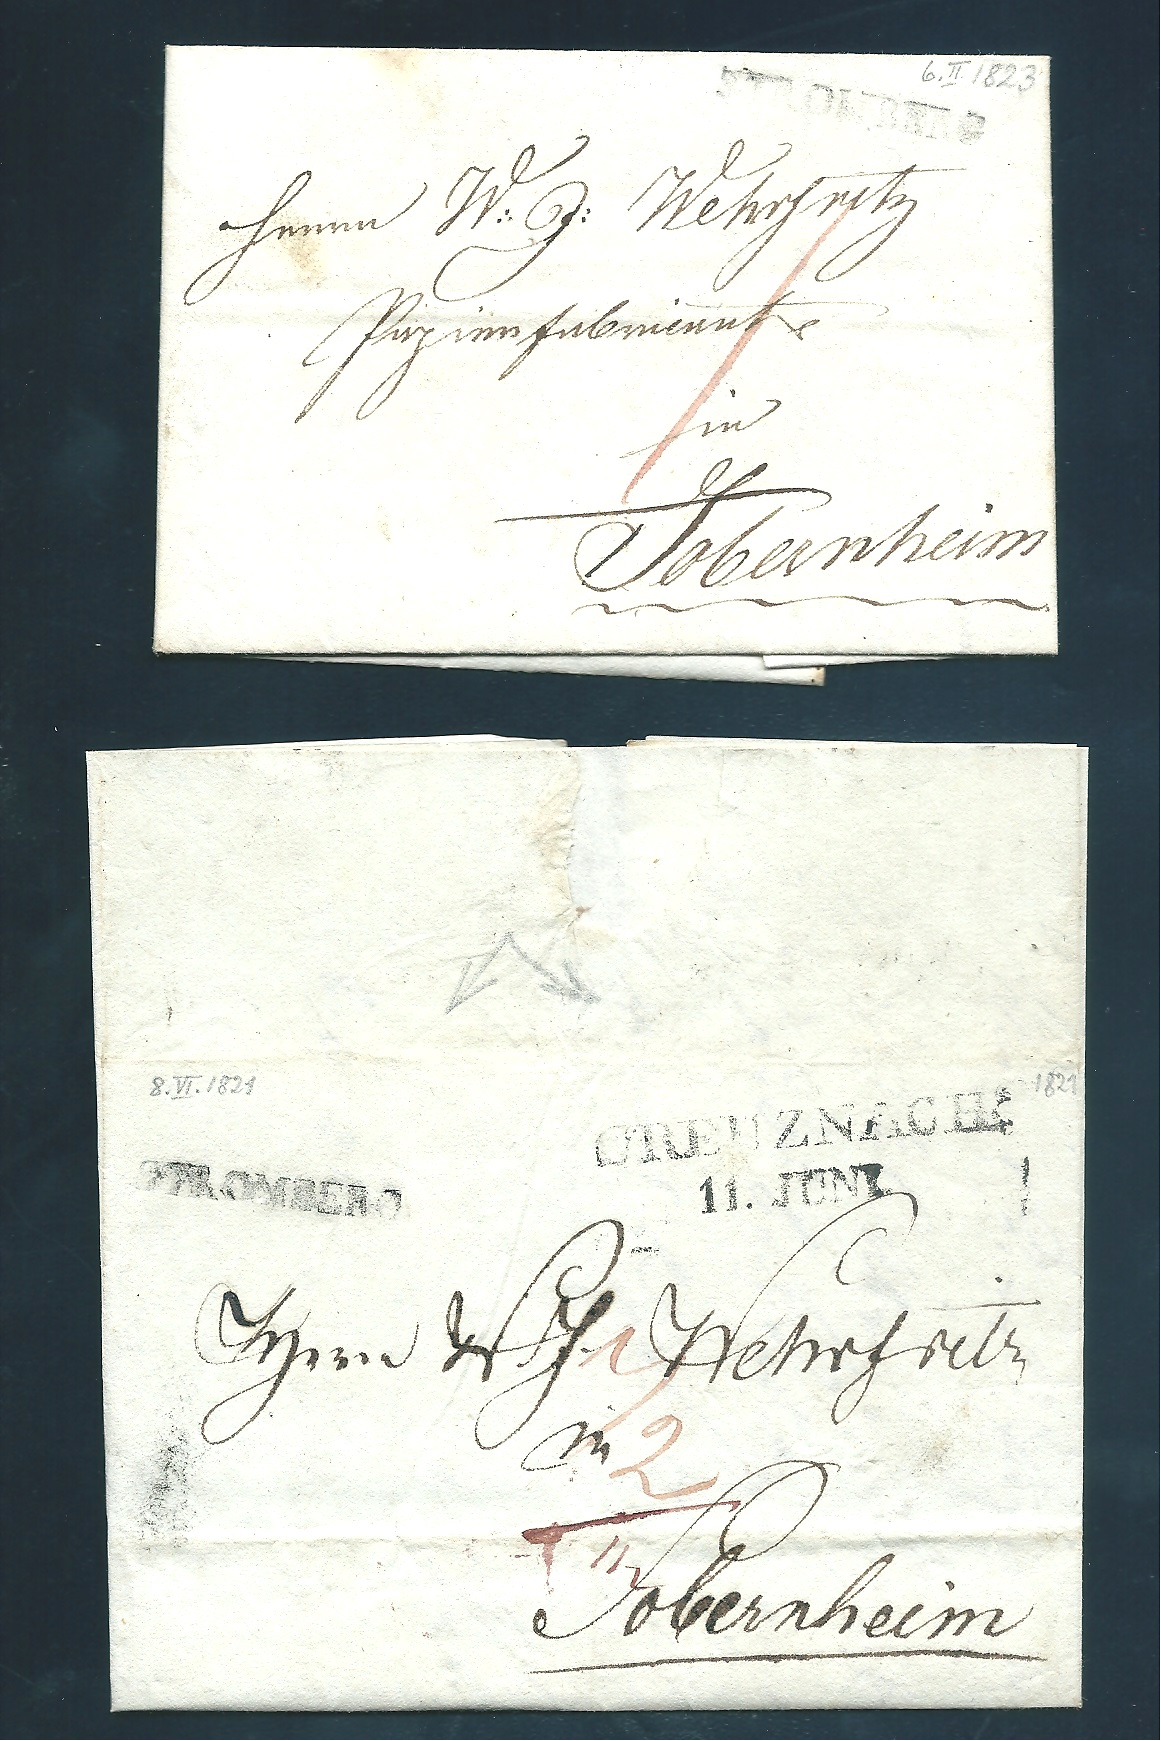 6. II 1823
STROMBERG
Herrn W: J: Wehrfritz
Papierfabricant
in
Sobernheim
8. VI. 1821
1821
CREUZNACH
11. JUNI
STROMBERG
Herrn W. Wehrfritz
in
2
Sobernheim